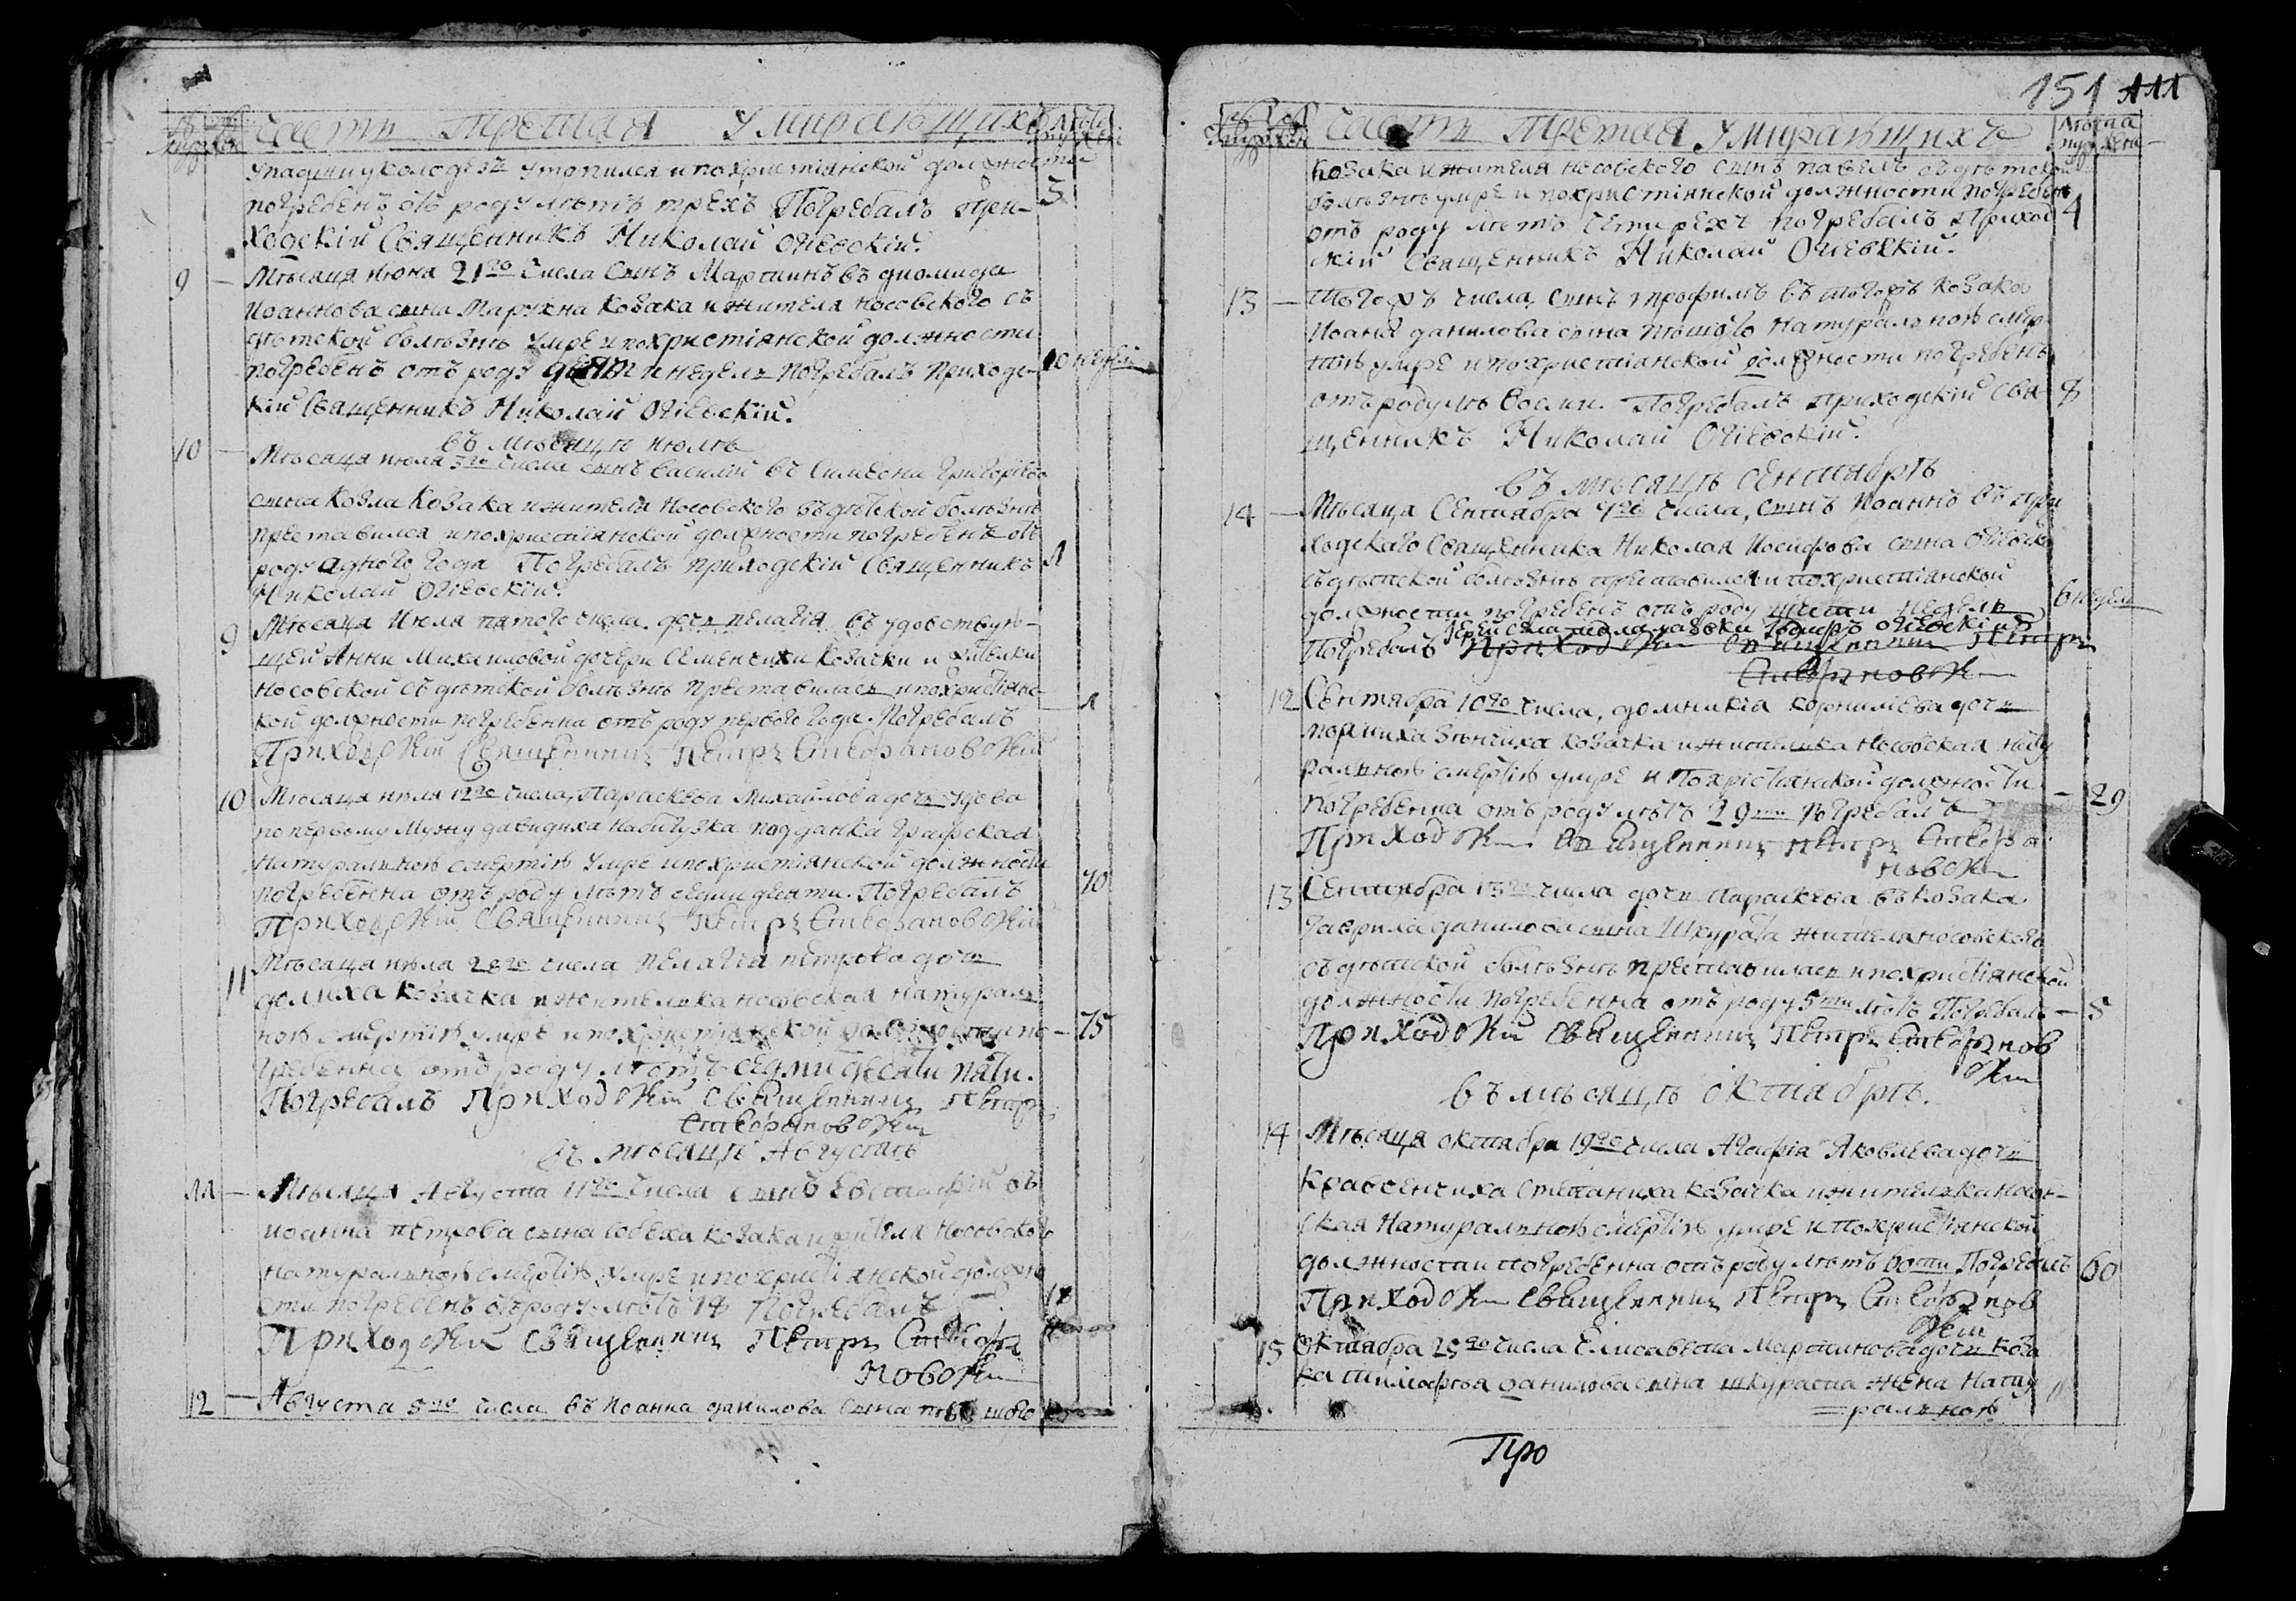 часть третая Умирающихъ
Упадши у колодезь утопился и похристіянской должности
погребенъ отъ роду летъ трехъ Погребалъ При- 3
ходскій Священникъ Николай Огіевскій.
9 — Мѣсяца июня 21го числа сынъ Мартинъ въ диомида
Иоаннова сына козака и жителя носовского съ
дѣтской болѣзнѣ умре и похристіянской должности
погребенъ отъ роду недель погребалъ приходс- 10 недель
кій Священникъ Николай Огіевскій.
въ мѣсяцѣ июлѣ
10 — Мѣсяца июля числа сынъ василій въ Симеона григориева
сына Козла Козака и жителя Носовского съ дѣтской болѣзнѣ
преставился и похристіянской должности погребенъ отъ
роду адного года Погребалъ приходскій Священникъ 1
Николай Огіевскій.
9 Мѣсяца Июля пятого числа дочь пелагія въ удовствую-
щей Анни Михаиловой дочери Семенчихи козачки и жителки
носовской съ дѣтской болѣзнѣ преставилась и похристіянс-
кой должности погребенна отъ роду первого года. Погребалъ — 1
Приходскій Священникъ Петръ Стефановскій
10 Мѣсяца июля 12го числа, Параскева Михайлова дочь удова
по первому мужу давидиха подданка графская
натуральною смертію умре и похристіянской должности
погребенна отъ роду лѣтъ седмидесяти. Погребалъ 70
Приходскій Священникъ Петръ Стефановскій
11 Мѣсяца июля 28го числа пелагія петрова дочь
козачка и жителька носовская натураль
ною смертію умре и похристіянской должности по — 75
гребенна отъ роду лѣтъ седмидесяти пяти.
Погребалъ Приходскій Священникъ Петръ
Стефановскій
въ мѣсяцѣ Августѣ
11 — Мѣсяца Августа 11го числа сынъ Евстафій въ
иоанна петрова сына козака и жителя Носовского
натуральною смертію умре и похристіянской должно
сти погребенъ отъ роду лѣтъ 18 Погребалъ 18
Приходскій Священникъ Петръ Стефа
новскій
12 — Августа 5го числа въ Иоанна данилова сына пѣшого
151 111
часть третая Умирающихъ
козака и жителя носовского сынъ павелъ съ дѣтской
болѣзнѣ умре и похристіянской должности погребенъ
отъ роду лѣтъ четирехъ погребалъ Приход 4
скій Священникъ Николай Огіевскій.
13 — Того жъ числа, сынъ трофимъ въ тогожъ козака
Иоанна данилова сына пѣшого натуральною смер
тію умре и похристіянской должности погребенъ
отъ роду лѣ восми. Погребалъ приходскій Свя 8
щенникъ Николай Огіевскій.
въ мѣсяцѣ сентябрѣ
14 — Мѣсяца Сентября 4го числа, сынъ Иоаннъ въ при
ходскаго Священника Николая Иосифова сына Огіевска
съ дѣтской болѣзнѣ преставился и похристіянской
должности погребенъ отъ роду шести недель 6 недель
Погребалъ Іерей Огіевскій
Приходскій Священникъ Петръ
Стефановскій
12 Сентября 10го числа, домникія корниліева дочь
козачка и жителька Носовская нату
ральною смертію умре и похристіянской должности
погребенна отъ роду лѣтъ 29ти Погребалъ — 29
Приходскій Священникъ Петръ Стефа
новскій
13 Сентября 13го числа дочь параскева въ козака
гаврила данилова сына Шкурата жителя носовского
съ дѣтской болѣзнѣ преставилась и похристіянской
должности погребенна отъ роду 5ти лѣтъ Погребалъ — 5
Приходскій Священникъ Петръ Стефанов
скій
въ мѣсяцѣ октябрѣ.
14 Мѣсяца октября 19го числа Агафія Яковлева дочь
Кравченчиха Степаниха козачка и жителька носов-
ская натуральною смертію умре и похристіянской
должности погребенна отъ роду лѣтъ 60ти Погребалъ 60
Приходскій Священникъ Петръ Стефанов
скій
15 Октября 25го числа Елисавета Мартинова дочь коза
ка тимофѣя данилова сына шкурата жена нату
ральною
Пр